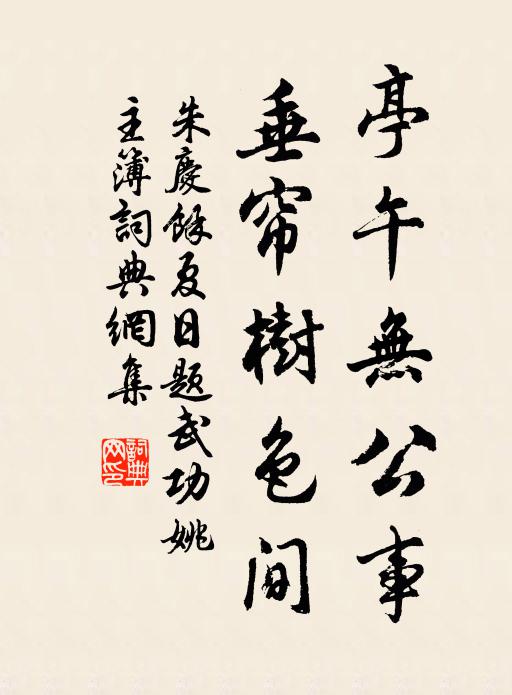 亭午無公事
垂帘樹色間
朱慶餘夏日題武功姚
主簿詞典網集
詞典
网印